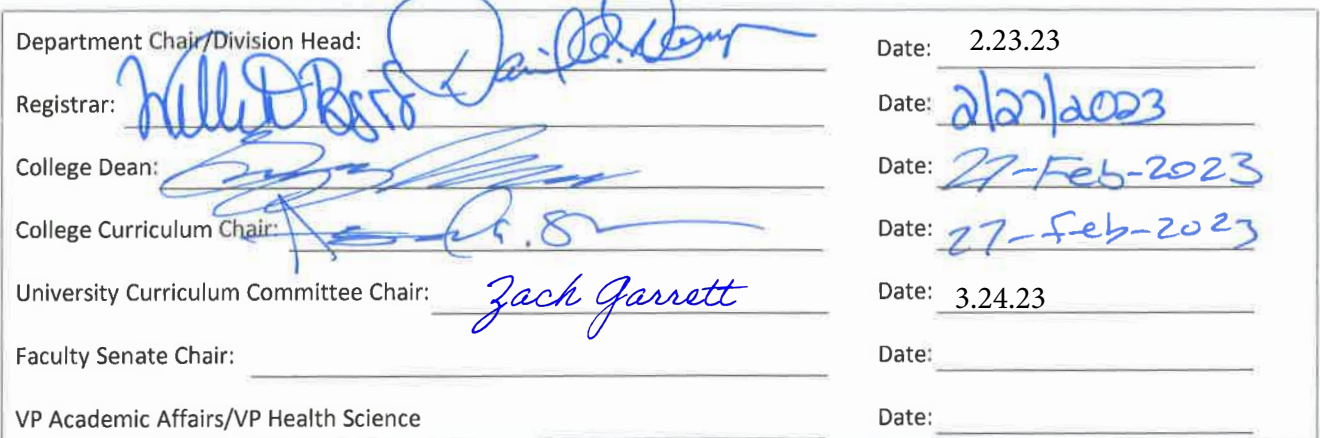 Department Chair/Division Head: Date: 2.23.23
Registrar: Date: 2/27/2023
College Dean: Date: 27-Feb-2023
College Curriculum Chair: Date: 27-Feb-2023
University Curriculum Committee Chair: Zach Garrett Date: 3.24.23
Faculty Senate Chair: Date:
VP Academic Affairs/VP Health Science Date: